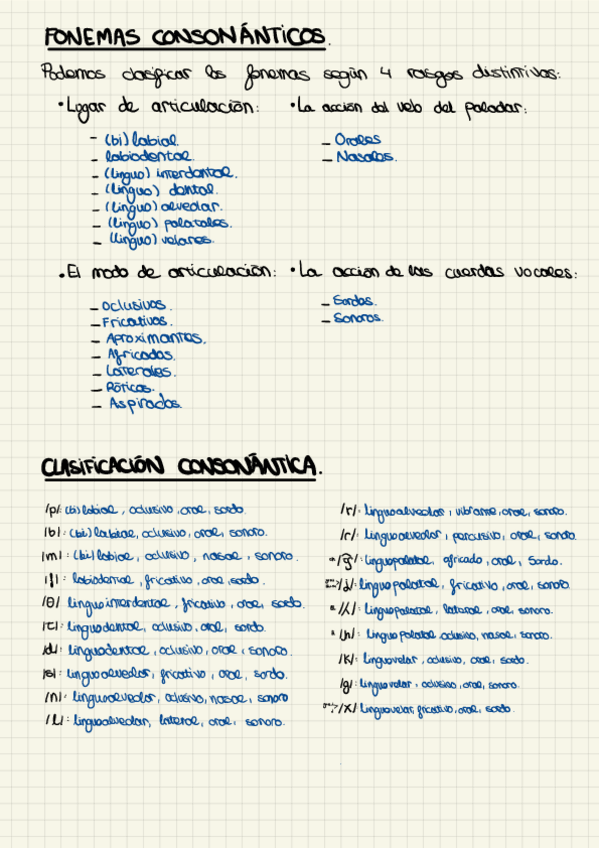 FONEMAS CONSONÁNTICOS.
Podemos clasificar los fonemas según 4 rasgos distintivos:
• Lugar de articulación:
- (bi) labial.
- labiodental.
- (linguo) interdental.
- (linguo) dental.
- (linguo) alveolar.
- (linguo) palatales.
- (linguo) velares.
• La acción del velo del paladar:
- Orales
- Nasales.
• El modo de articulación:
- Oclusivos.
- Fricativos.
- Aproximantes.
- Africadas.
- Laterales.
- Róticas.
- Aspirados.
• La acción de las cuerdas vocales:
- Sordas.
- Sonoros.
CLASIFICACIÓN CONSONÁNTICA.
/p/: (bi) labial, oclusivo, oral, sordo.
/b/: (bi) labial, oclusivo, oral, sonoro.
/m/: (bi) labial, oclusivo, nasal, sonoro.
/f/: labiodental, fricativo, oral, sordo.
/θ/ linguointerdental, fricativo, oral, sordo.
/t/: linguodental, oclusivo, oral, sordo.
/d/: linguodental, oclusivo, oral, sonoro.
/s/: linguoalveolar, fricativo, oral, sordo.
/n/: linguoalveolar, oclusivo, nasal, sonoro
/l/: linguoalveolar, lateral, oral, sonoro.
/r/: linguoalveolar, vibrante, oral, sonoro.
/r/: linguoalveolar, percusivo, oral, sonoro.
linguopalatal, africado, oral, sordo.
linguopalatal, fricativo, oral, sonoro
/ʎ/: linguopalatal, lateral, oral, sonoro.
linguopalatal oclusivo, nasal, sonoro.
/k/: linguovelar, oclusivo, oral, sordo.
/g/: linguovelar, oclusivo, oral, sonoro.
/x/ linguovelar, fricativo, oral, sordo.